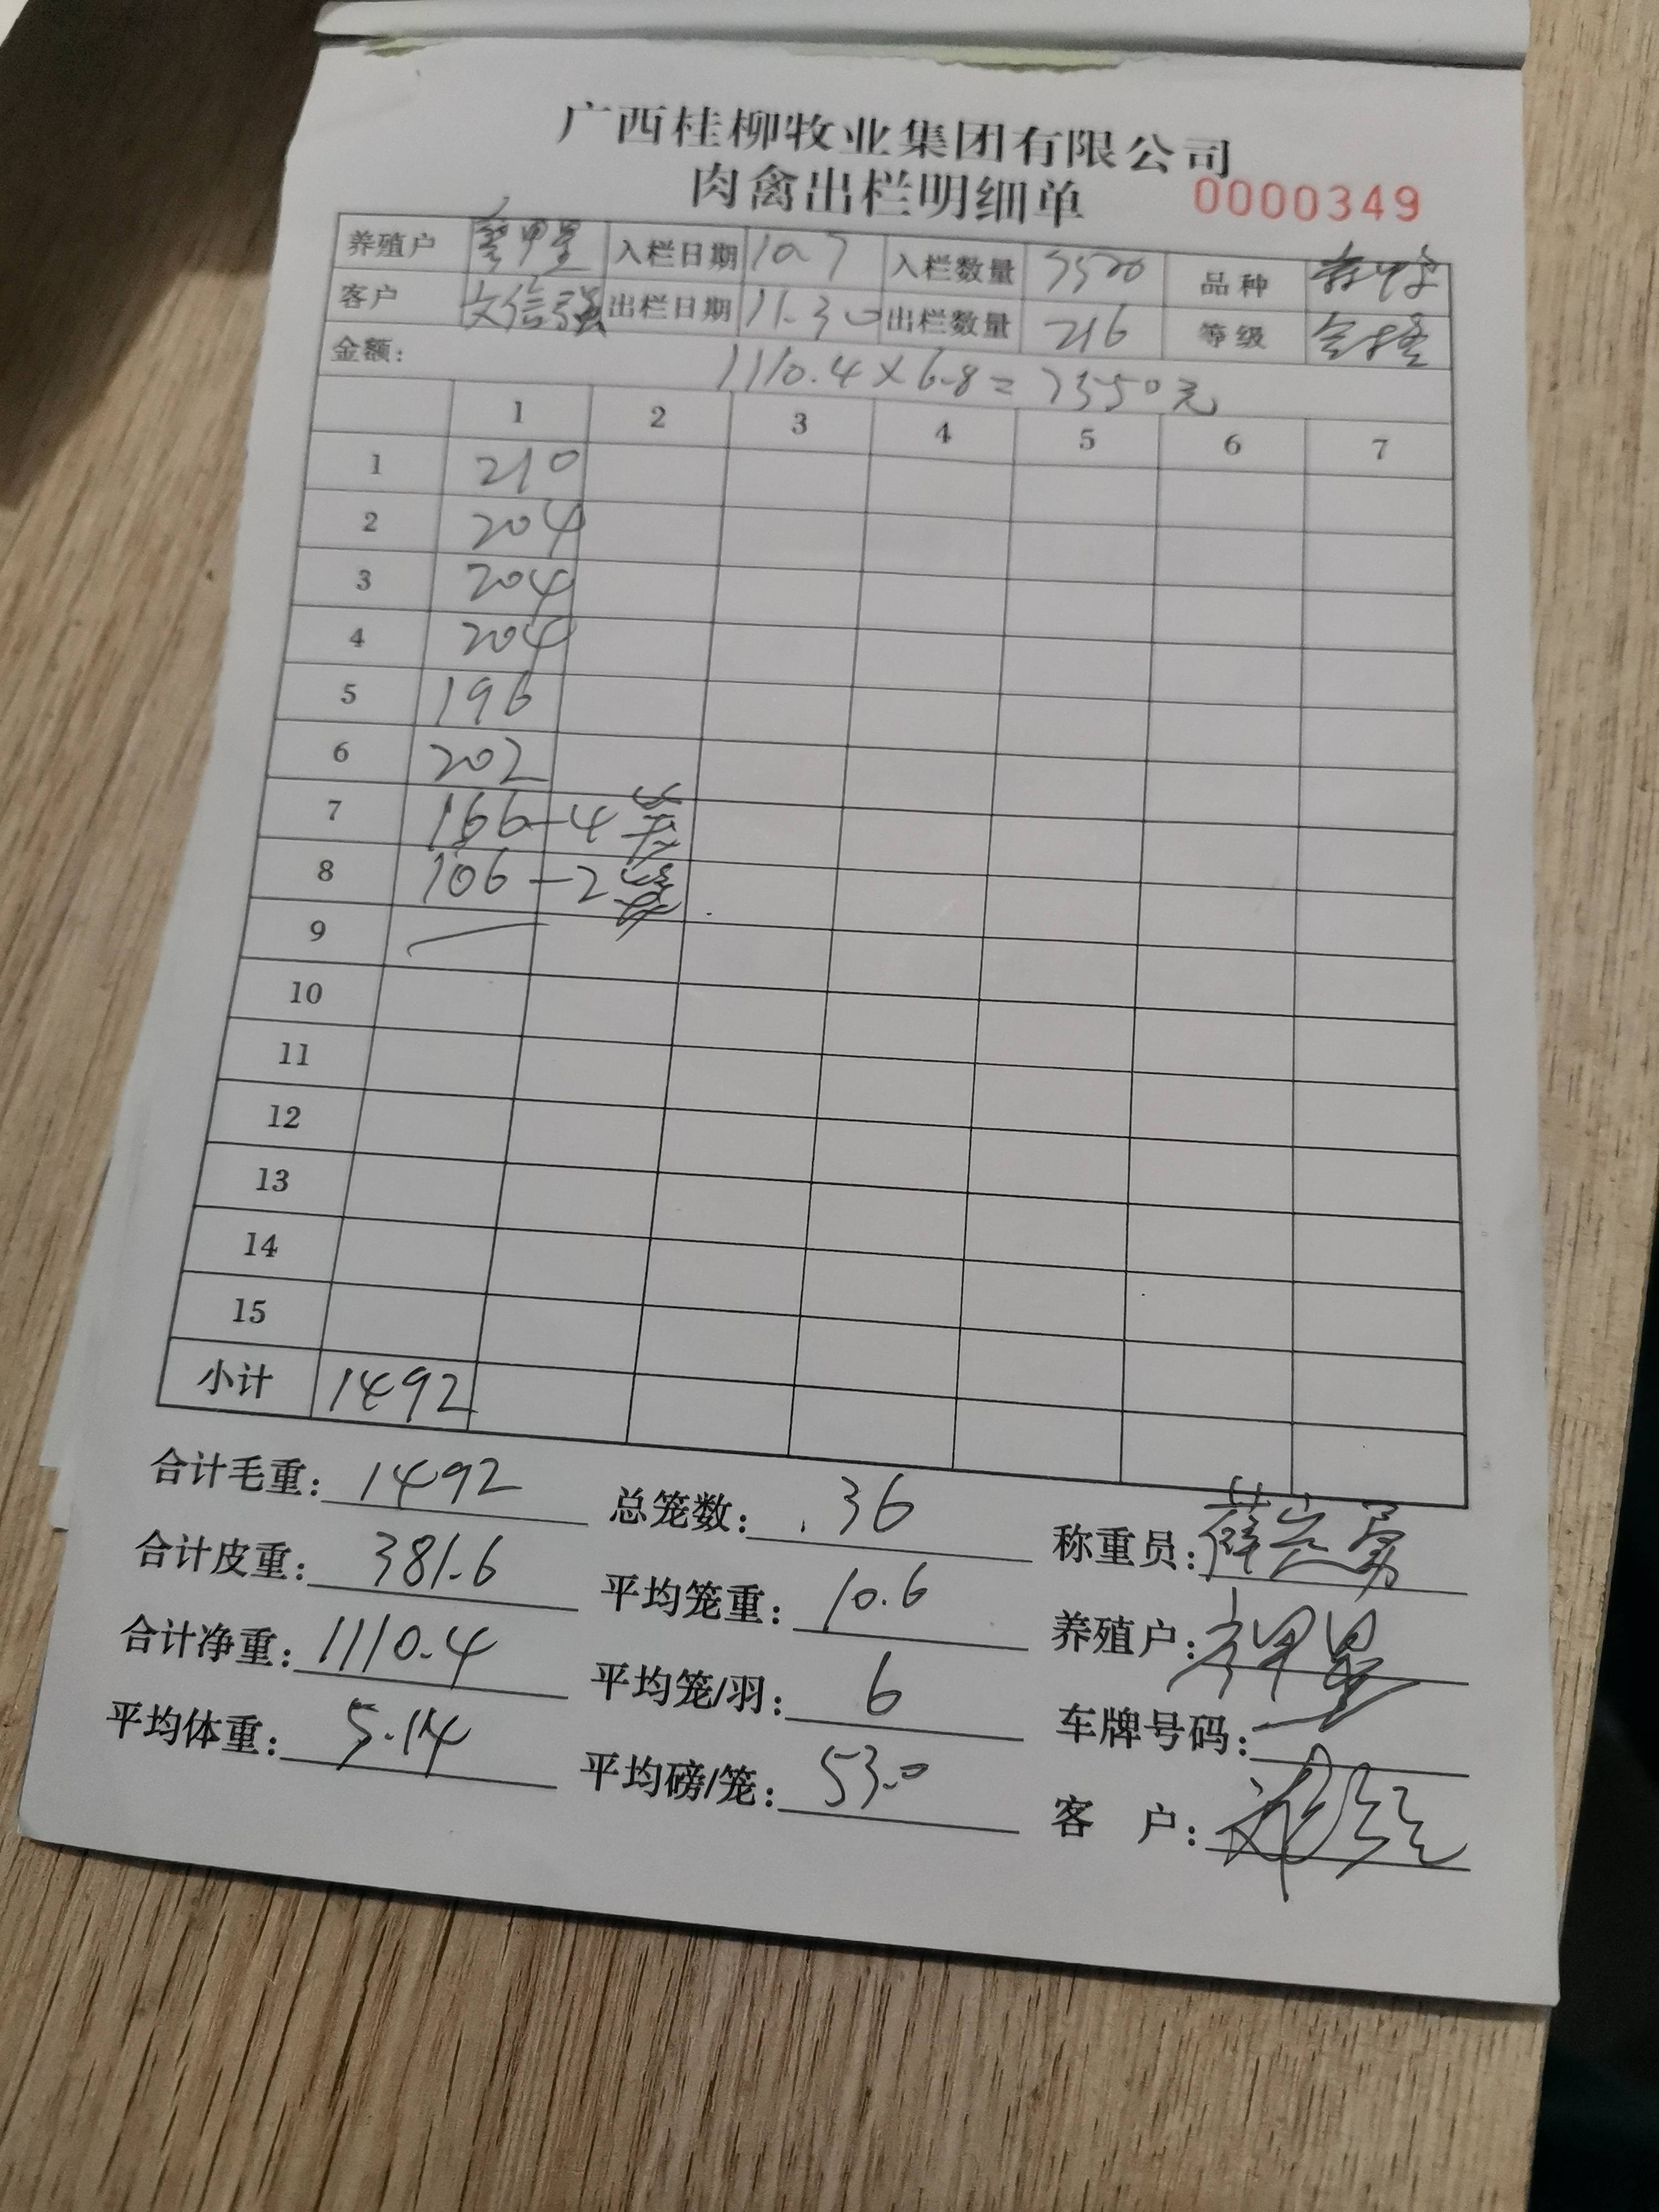 广西桂柳牧业集团有限公司
肉禽出栏明细单 0000349
养殖户 入栏日期 10.7 入栏数量 3500 品种
客户 文信强 出栏日期 11.30 出栏数量 216 等级
金额: 1110.4×6.8=7550元
1 2 3 4 5 6 7
1 210
2 204
3 204
4 204
5 196
6 202
7 166-4
8 106-2
9
10
11
12
13
14
15
小计 1492
合计毛重: 1492 总笼数: 36 称重员:
合计皮重: 381.6 平均笼重: 10.6 养殖户:
合计净重: 1110.4 平均笼/羽: 6 车牌号码:
平均体重: 5.14 平均磅/笼: 53.0 客 户: